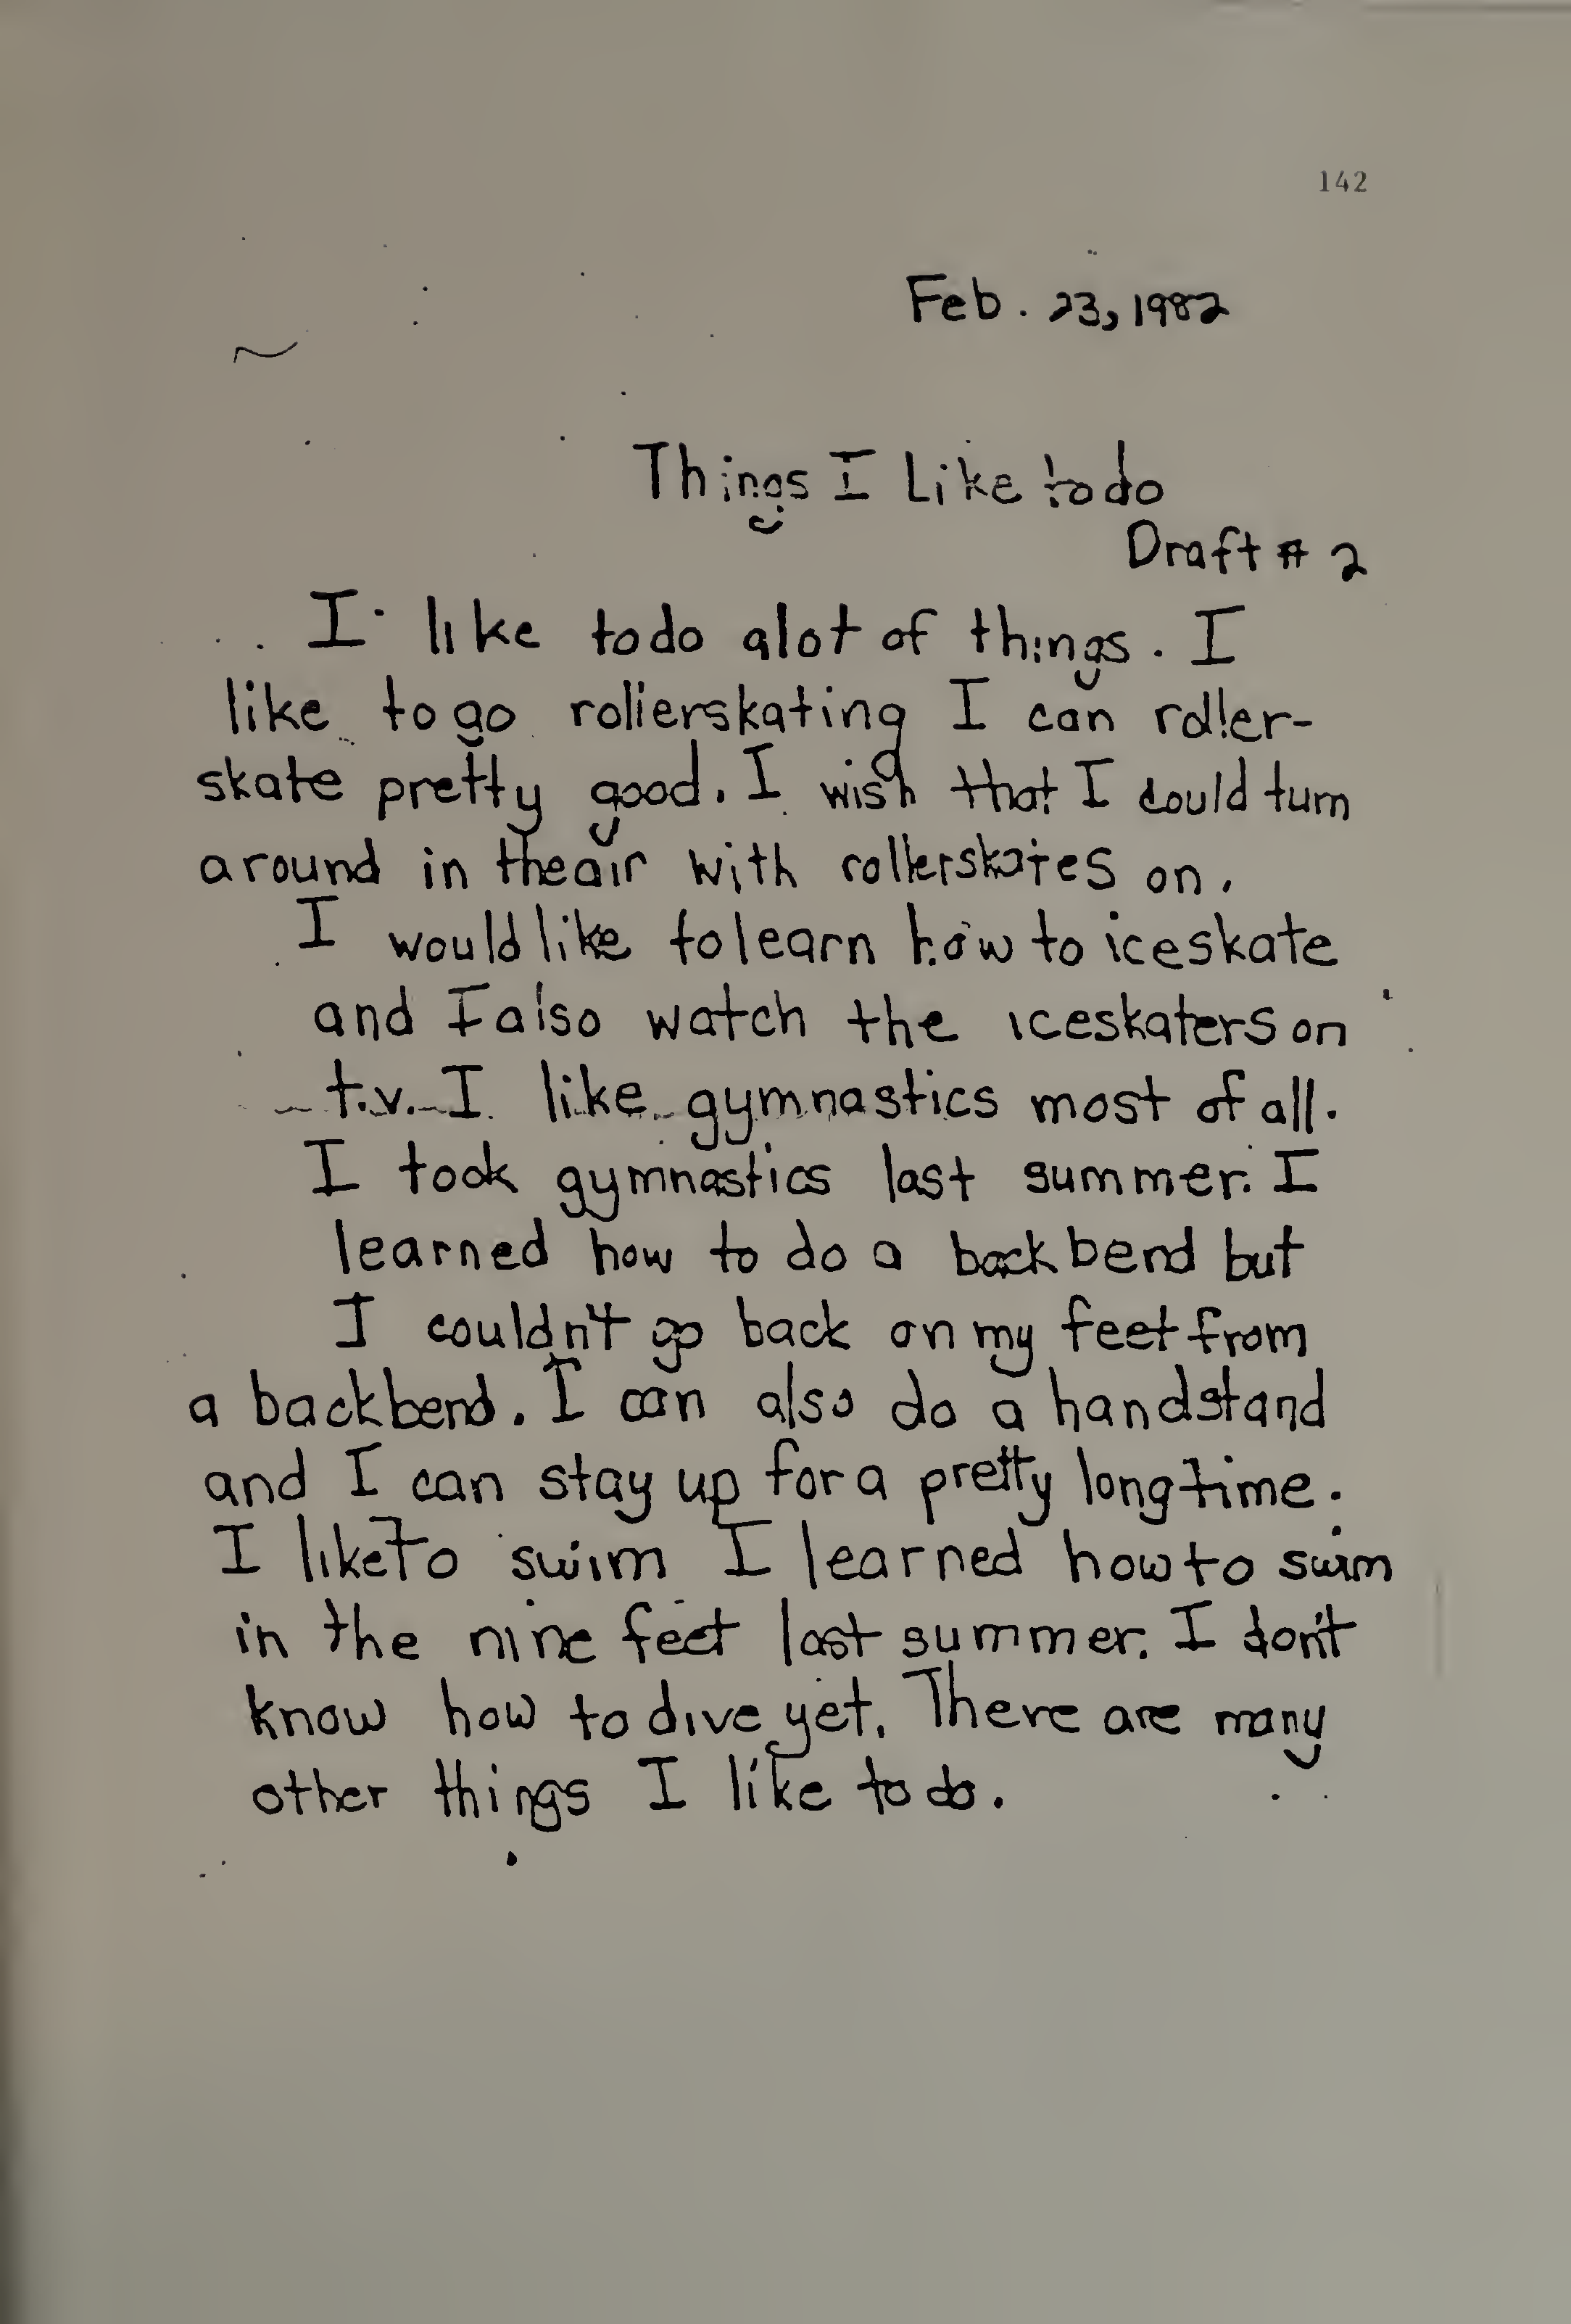 142
Feb. 23, 1982
Things I Like to do
Draft # 2
I like to do alot of things. I
like to go rollerskating I can roller-
skate pretty good. I wish that I could turn
around in the air with rollerskates on.
I would like to learn how to iceskate
and I also watch the iceskaters on
t.v. I like gymnastics most of all.
I took gymnastics last summer. I
learned how to do a backbend but
I couldn't go back on my feet from
a backbend. I can also do a handstand
and I can stay up for a pretty long time.
I like To swim I learned how to swim
in the nine feet last summer. I don't
know how to dive yet. There are many
other things I like to do.